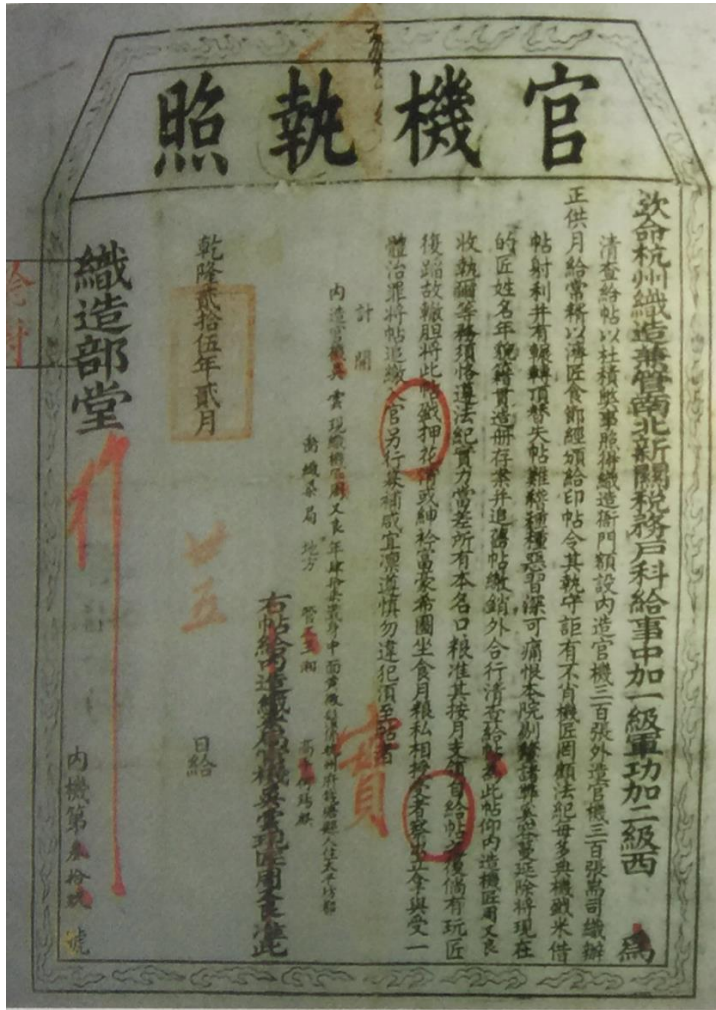 官機執照
欽命杭州織造兼管南北新關稅務戶科給事中加一級軍功加二級西 為
清查給帖以杜積弊事照得織造衙門額設內造官機三百張外造官機三百張為司織辦
正供月給常糈以濟匠食節經頒給印帖令其執守詎有不肖機匠罔顧法紀每多典機戤米借
帖射利并有輾轉頂替失帖難稽種種惡習深可痛恨本院剔釐諸弊奚容蔓延除將現在
的匠姓名年貌籍貫造冊存案并追舊帖繳銷外合行清查給帖為此帖仰內造機匠周文良
收執爾等務須恪遵法紀實力當差所有本名口粮准其按月支領自給帖之後倘有玩匠
復蹈故轍胆將此帖戤押花消或紳衿富豪希圖坐食月粮私相授受者察出立拿與受一
體治罪將帖追繳官另行募補咸宜凜遵慎勿違犯須至帖者
計開
內造官機吳雲現織機匠周文良年肆拾 歲身中面黃微鬚係杭州府錢塘縣人住太平坊
右帖給內造織 官機吳雲現匠周文良准此
乾隆貳拾伍年貳月 廿五 日給
實
織造部堂
內機第叁拾 號